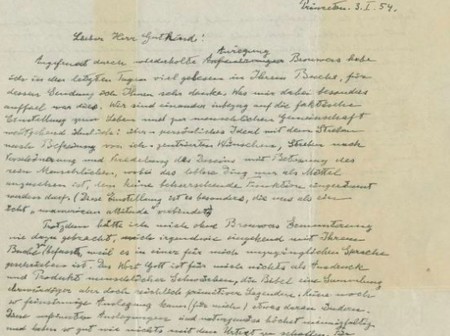 Princeton. 3. I. 54.
Lieber Herr Gutkind!
Anregung
Angefeuert durch wiederholte Brouwers habe
ich in den letzten Tagen viel gelesen in Ihrem Buche, für
dessen Sendung ich Ihnen sehr danke. Was mir dabei besonders
auffiel war dies. Wir sind einander inbezug auf die faktische
Einstellung zum Leben und zur menschlichen Gemeinschaft
weitgehend ähnlich: persönliches Ideal mit dem Streben
nach Befreiung von ich-zentrierten Wünschen, Streben nach
Verschönerung und Veredelung des Daseins mit Betonung des
rein Menschlichen, wobei das leblose Ding nur als Mittel
anzusehen ist, dem keine beherrschende Funktion eingeräumt
werden darf. (Diese Einstellung ist es besonders, die uns als ein
echt "unamerican attitude" verbindet)
Trotzdem hätte ich mich ohne Brouwers Ermunterung
nie dazu gebracht, mich irgendwie eingehend mit Ihrem
Buche zu befassen, weil es in einer für mich unzugänglichen Sprache
geschrieben ist. Das Wort Gott ist für mich nichts als Ausdruck
und Produkt menschlicher Schwächen, die Bibel eine Sammlung
ehrwürdiger aber doch reichlich primitiver Legenden. Keine noch
so feinsinnige Auslegung kann (für mich) etwas daran ändern.
Diese verfeinerten Auslegungen sind naturgemäss höchst mannigfaltig
und haben so gut wie nichts mit dem Urtext zu schaffen. Für